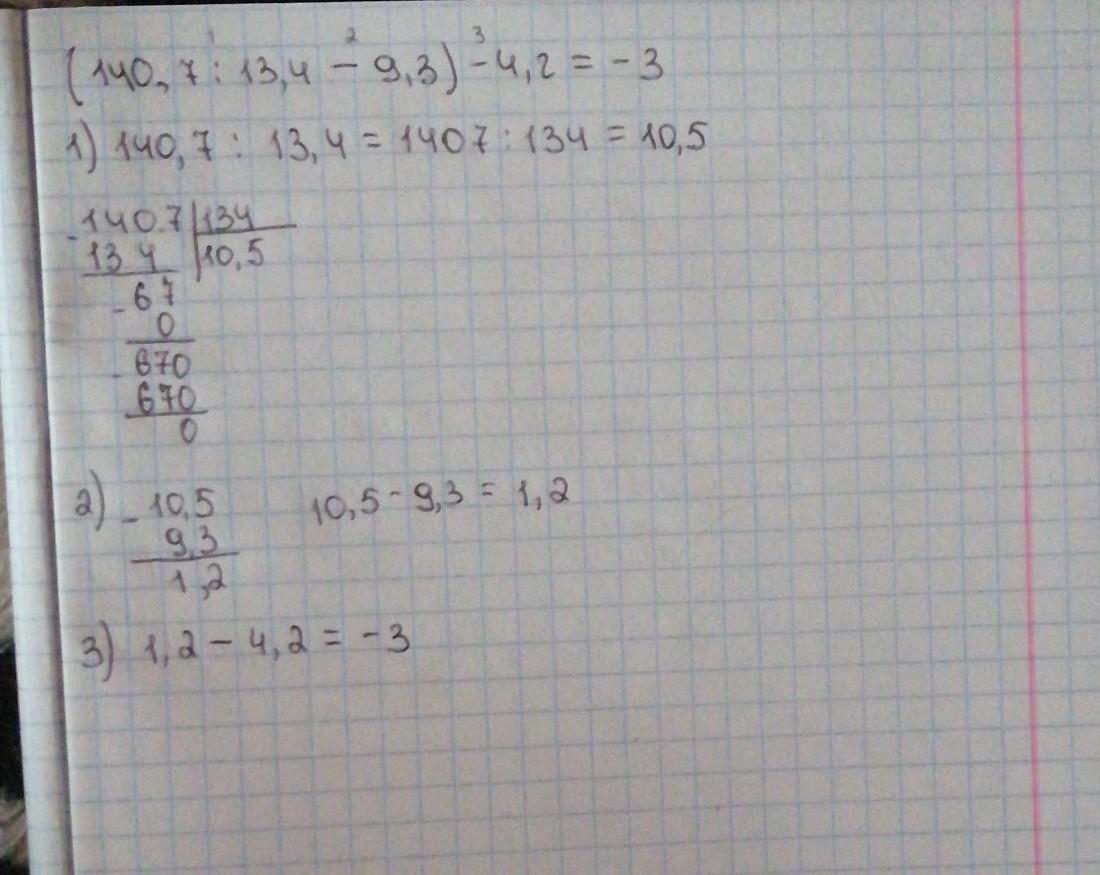 1 2 3
(140,7 : 13,4 - 9,3) - 4,2 = -3
1) 140,7 : 13,4 = 1407 : 134 = 10,5
- 1407 | 134
134 | 10,5
- 67
0
- 670
670
0
2) - 10,5 10,5 - 9,3 = 1,2
9,3
1,2
3) 1,2 - 4,2 = -3